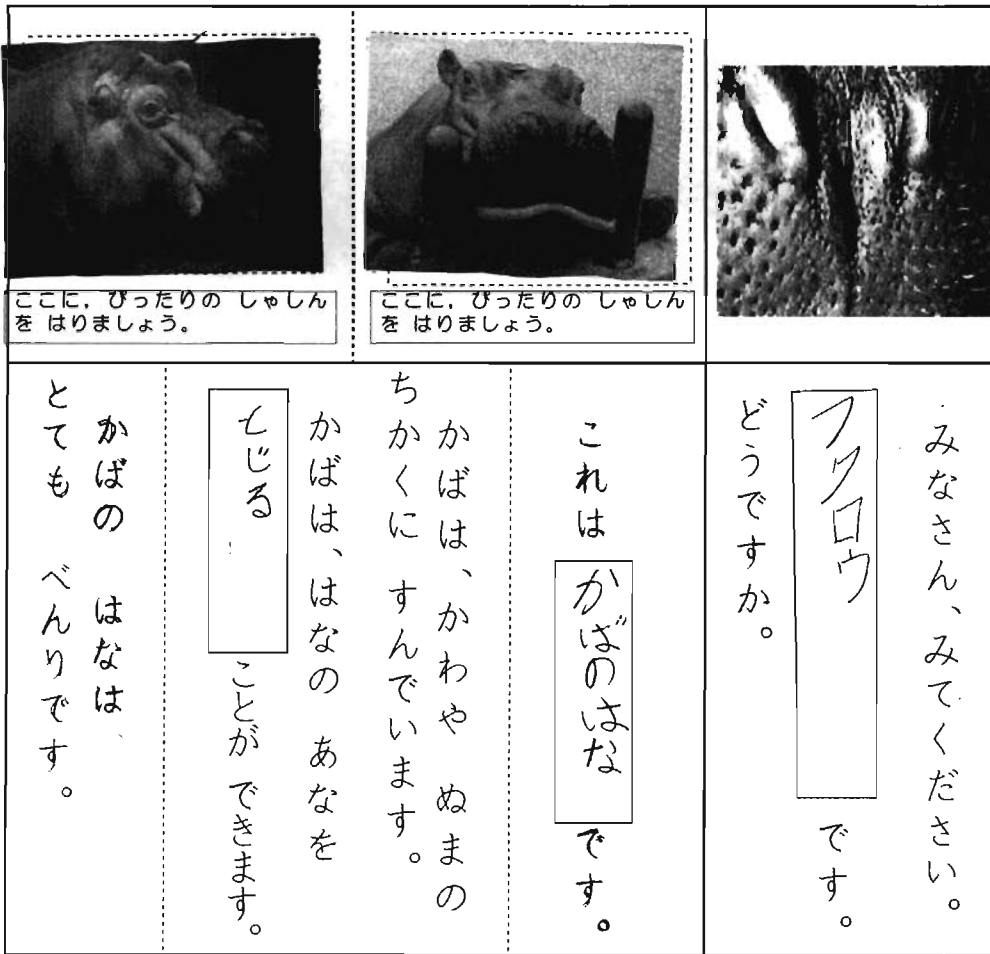 ここに，ぴったりの しゃしん
を はりましょう。
ここに，ぴったりの しゃしん
を はりましょう。
みなさん、みてください。
フクロウ です。
どうですか。
これは かばのはな です。
かばは、かわや ぬまの
ちかくに すんでいます。
かばは、はなの あなを
とじる ことが できます。
かばの はなは、
とても べんりです。